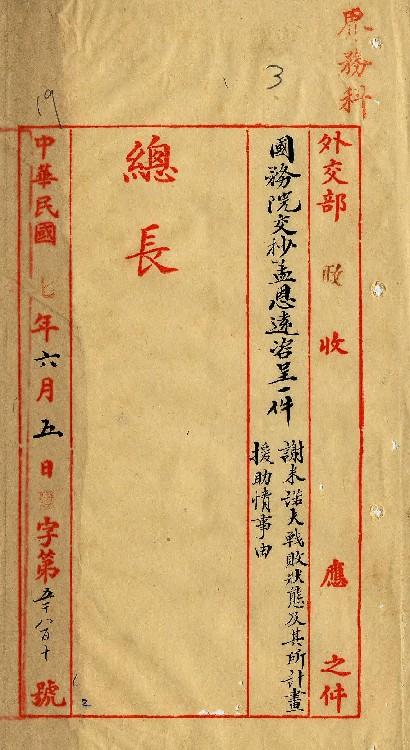 界務科
3
外交部 收 收 應 之件
國務院交抄孟恩遠咨呈一件
謝米諾夫戰敗狀態及其所計畫
援助情事由
總長
19
中華民國 七 年 六 月 五 日 字第 五千八百十 號
2